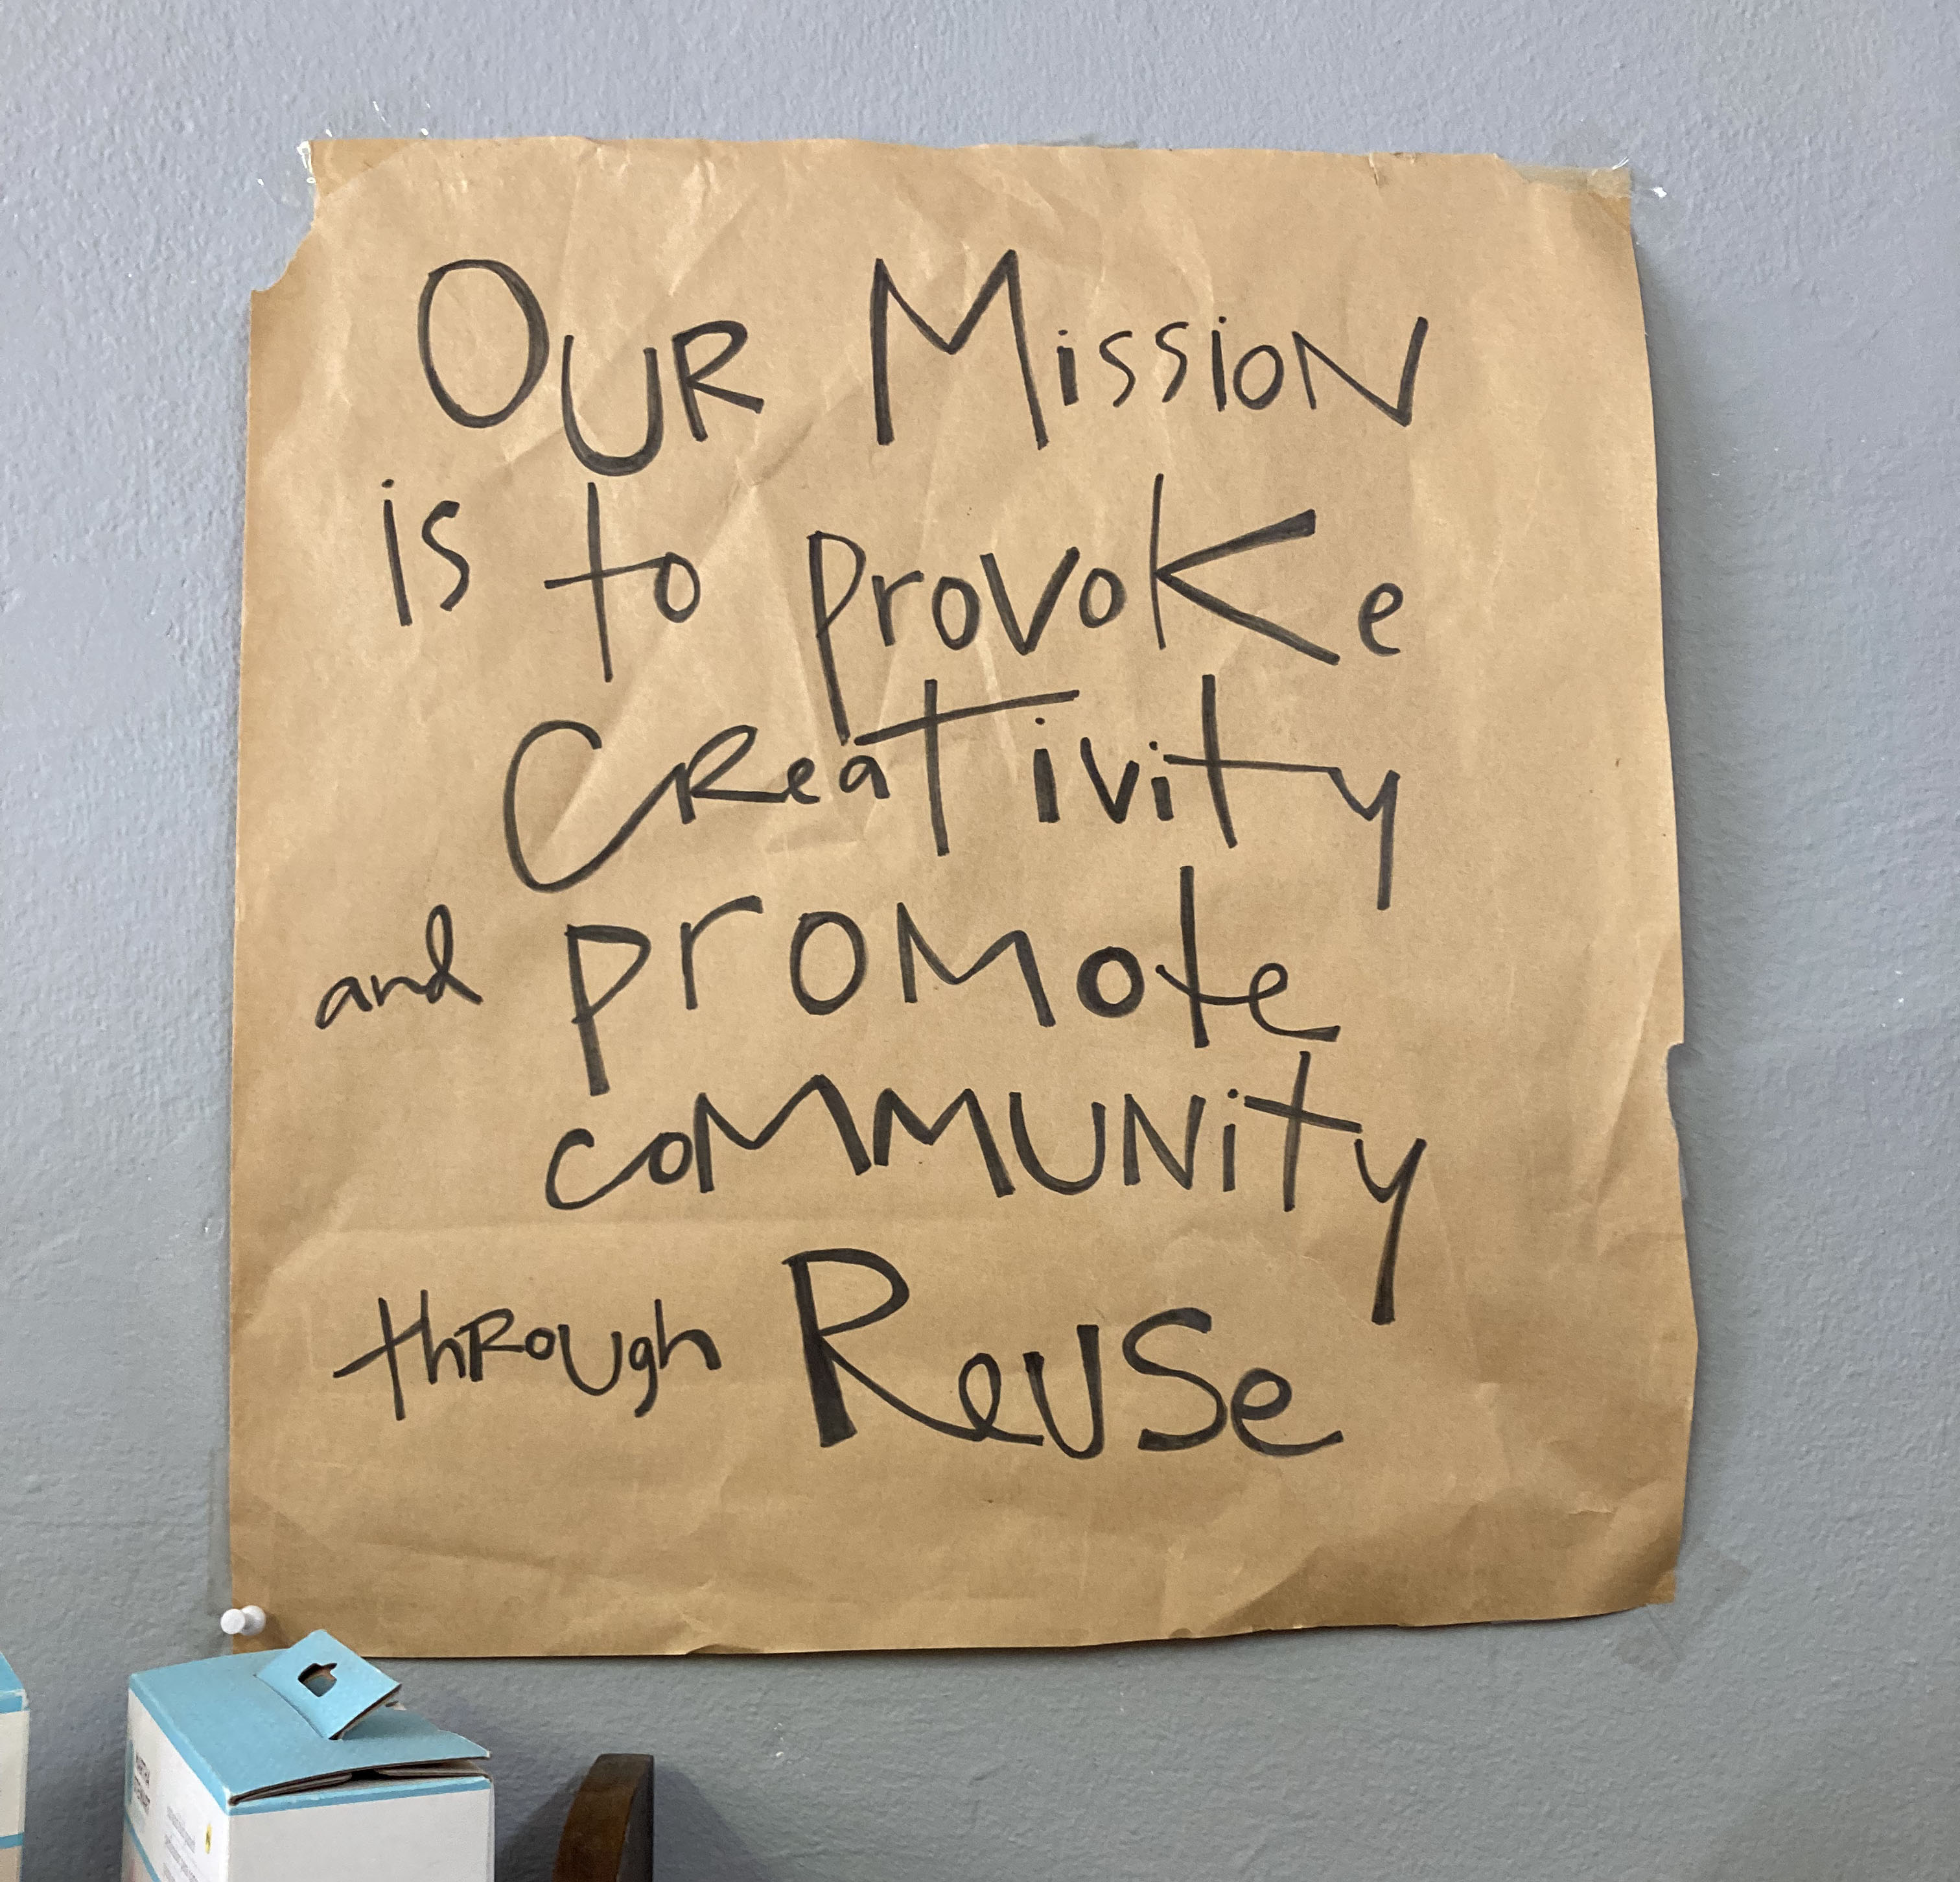 OUR MissioN
is to provoKe
CReaTivity
and proMote
coMMUNity
thRoUgh ReUSe
MARTHA
STEWART